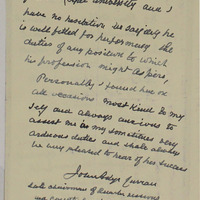 and I
have no hesitation in saying he
is well fitted for performing the
duties of any position to which
his profession might aspire,
Personally I found him on
all occasions most kind to my
self and always anxious to
assist me in my sometimes very
arduous duties and shall always
be very pleased to hear of his success
John Curran
Late chairman of Quarter sessions